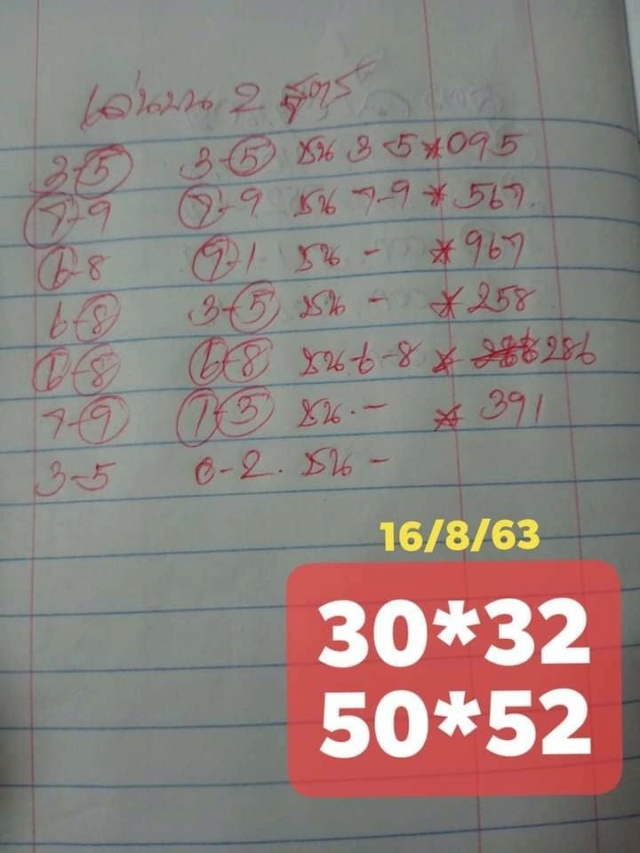 เด่นบน 2 สูตร
3-5 3-5 ชน 3-5 * 095
7-9 7-9 ชน 7-9 * 567
6-8 9-1 ชน - * 967
6-8 3-5 ชน - * 258
6-8 6-8 ชน.6-8 * 286
7-9 1-3 ชน.- * 391
3-5 0-2. ชน -
16/8/63
30*32
50*52